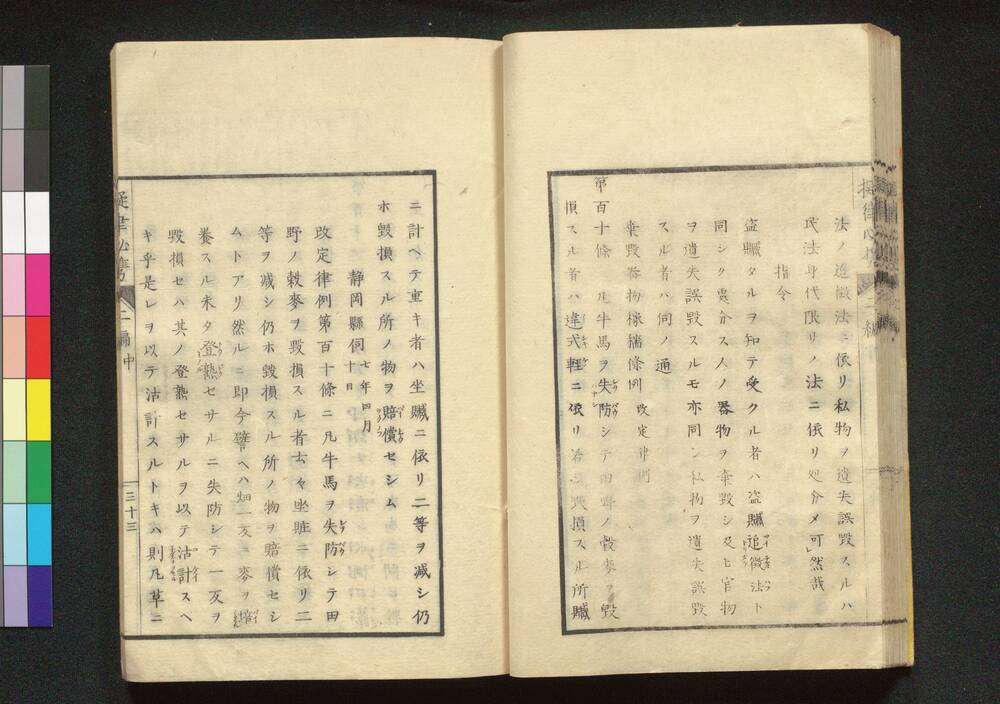 法ノ追徴法ニ依リ私物ヲ遺失誤毀スルハ
民法身代限リノ法ニ依リ処分メ可然哉
指令
盗贓タルヲ知テ受クル者ハ盗贓追徴法ト
同シク処分ス人ノ器物ヲ棄毀シ及ヒ官物
ヲ遺失誤毀スルモ亦同シ私物ヲ遺失誤毀
スル者ハ伺ノ通
棄毀器物稼穡條例 改定律例
第百十條 凡牛馬ヲ失防シテ田野ノ穀麥ヲ毀
損スル者ハ違式軽ニ依リ毀損スル所贓
ニ計ヘテ重キ者ハ坐贓ニ依リ二等ヲ减シ仍
ホ毀損スル所ノ物ヲ賠償セシム
静岡縣伺 七年四月十日
改定律例第百十條ニ凡牛馬ヲ失防シテ田
野ノ穀麥ヲ毀損スル者云々坐贓ニ依リ二
等ヲ减シ仍ホ毀損スル所ノ物ヲ賠償セシ
ムトアリ然ルニ即今譬ヘハ畑一反ニ麥ヲ
養スル未タ登熟セサルニ失防シテ一反ヲ
毀損セハ其ノ登熟セサルヲ以テ沽計スヘ
キ乎是レヲ以テ沽計スルトキハ則凡草ニ
二編中
三十三